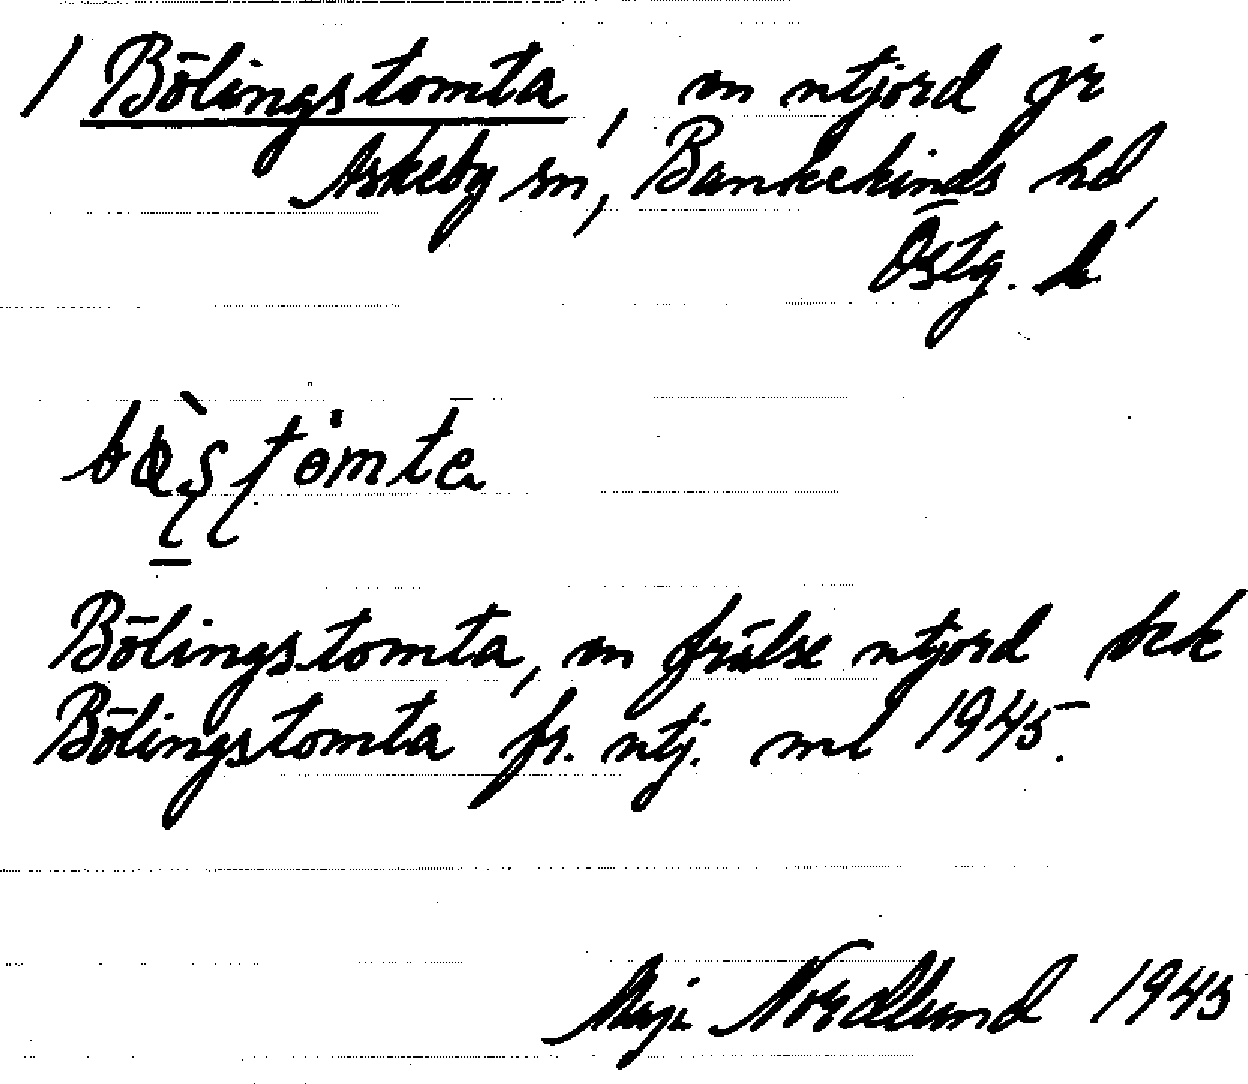 1 Bölingstomta, en utjord gr
Askeby sn, Bankekinds hd
Östg. l
Bölingstomta, en frälse utjord
Bölingstomta fr. utj. ml 1945.
Maja Nordlund 1945